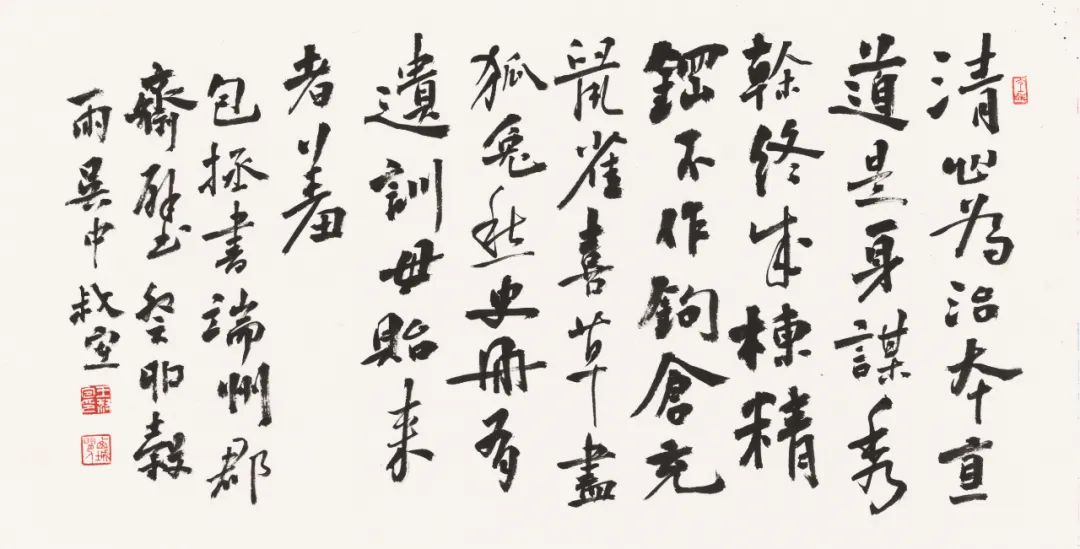 清心為治本直
道是身謀秀
幹終成棟精
鋼不作鉤倉充
鼠雀喜草盡
狐兔愁史冊有
遺訓毋貽来
者羞
包拯書端州郡
齋壁癸卯穀
雨吴中